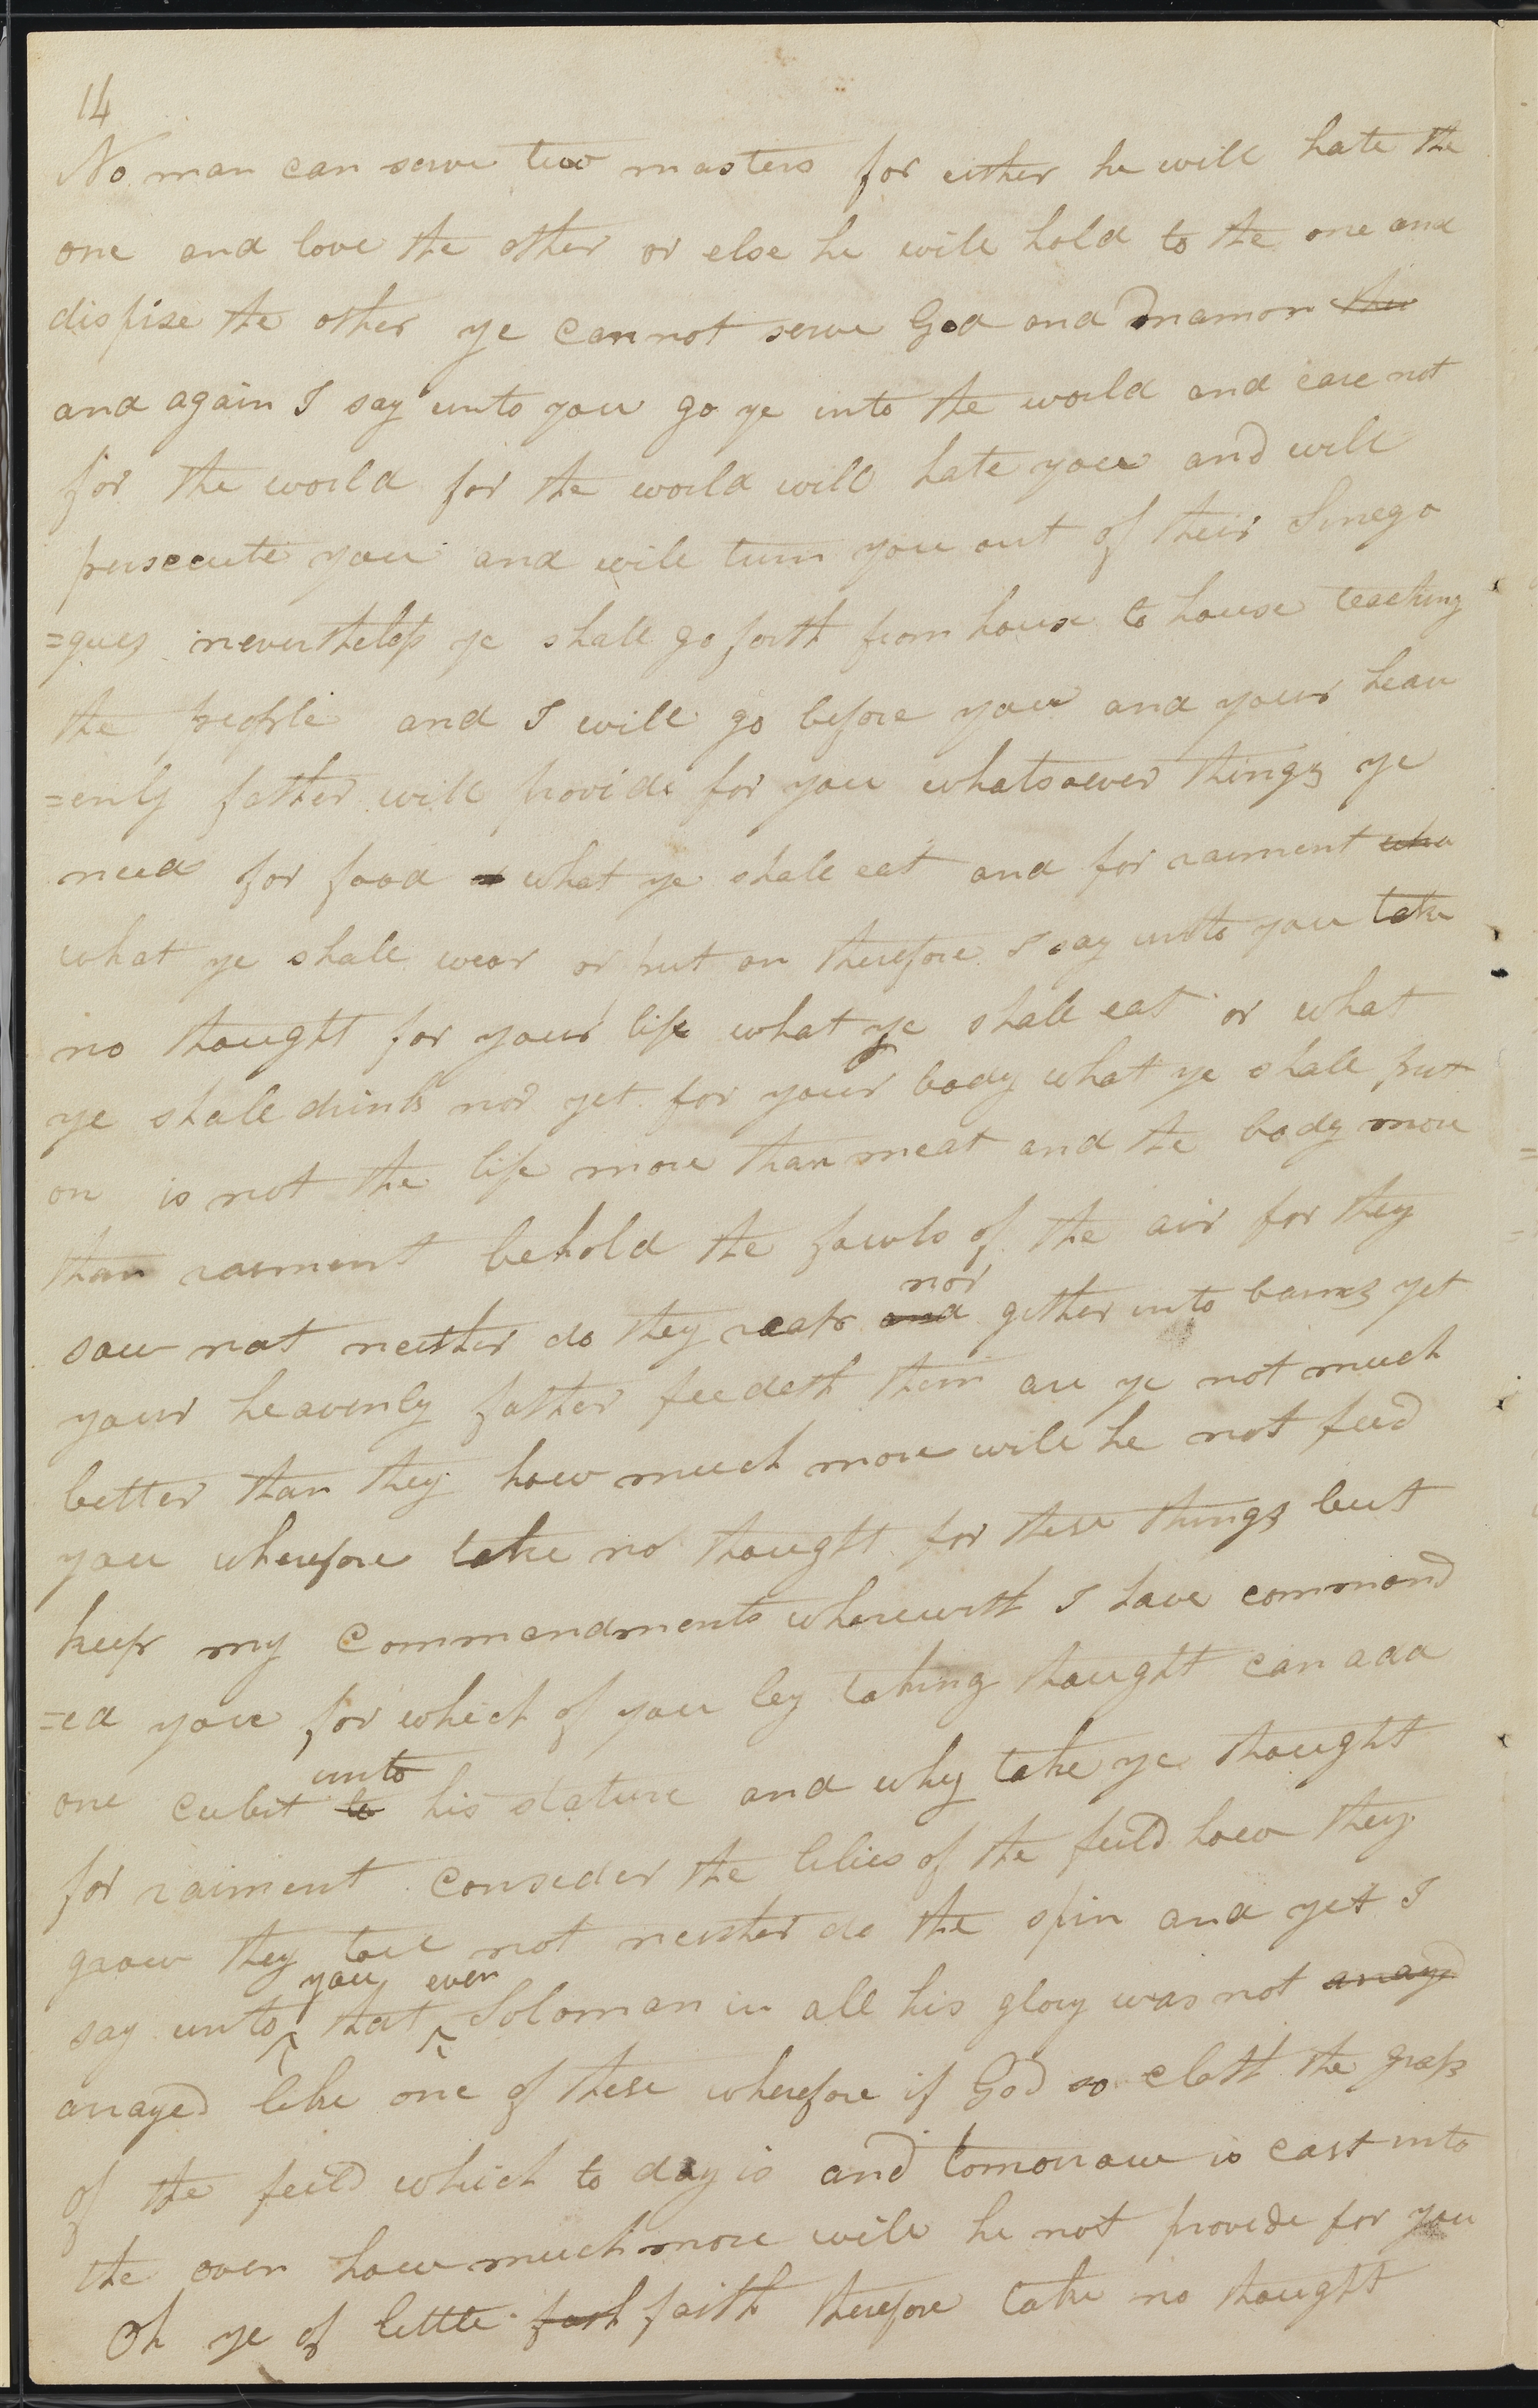 14
No man can serve two masters for either he will hate the
one and love the other or else he will hold to the one and
dispise the other ye cannot serve God and mamon the
and again I say unto you go ye into the world and care not
for the world for the world will hate you and will
persecute you and will turn you out of their Sinego
=gues nevertheless ye shall go forth from house to house teaching
the people and I will go before you and your heav
=enly father will provide for you whatsoever things ye
need for food what ye shall eat and for raiment wha
what ye shall wear or put on therefore I say unto you take
no thought for your life what ye shall eat or what
ye shall drink nor yet for your body what ye shall put
on is not the life more than meat and the body more
than raiment behold the fowls of the air for they
nor
sow not neither do they reap and gether into barns yet
your heavenly father feedeth them are ye not much
better than they how much more will he not feed
you wherefore take no thought for these things but
keep my commandments wherewith I have command
=ed you for which of you by taking thought can add
unto
one cubit to his stature and why take ye thought
for raiment consider the lilies of the feild how they
grow they toil not neither do the spin and yet I
you even
say unto ^ that ^ Soloman in all his glory was not arrayed
arrayed like one of these wherefore if God so cloth the grass
of the feild which to day is and tomorrow is cast into
the oven how much more will he not provide for you
Oh ye of little faith faith therefore take no thought